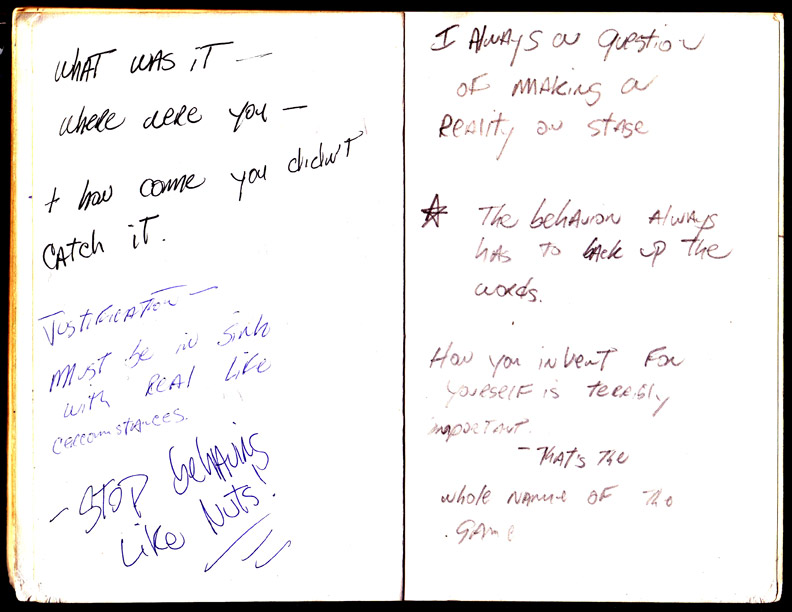 WHAT WAS iT —
where were you —
+ how come you didn't
CATCH iT.
JUSTIFICATION —
MUST be in Sink
with REAL Life
cercomstances.
- STOP behaving
Like Nuts!
I Always a question
OF MAKING a
REALITY on STAGE
☆ The behavior ALWAYS
HAS TO back up the
words.
How you invent FOR
YOURSELF is TERRIBLY
important.
- THAT'S THE
whole NAME OF THE
GAME